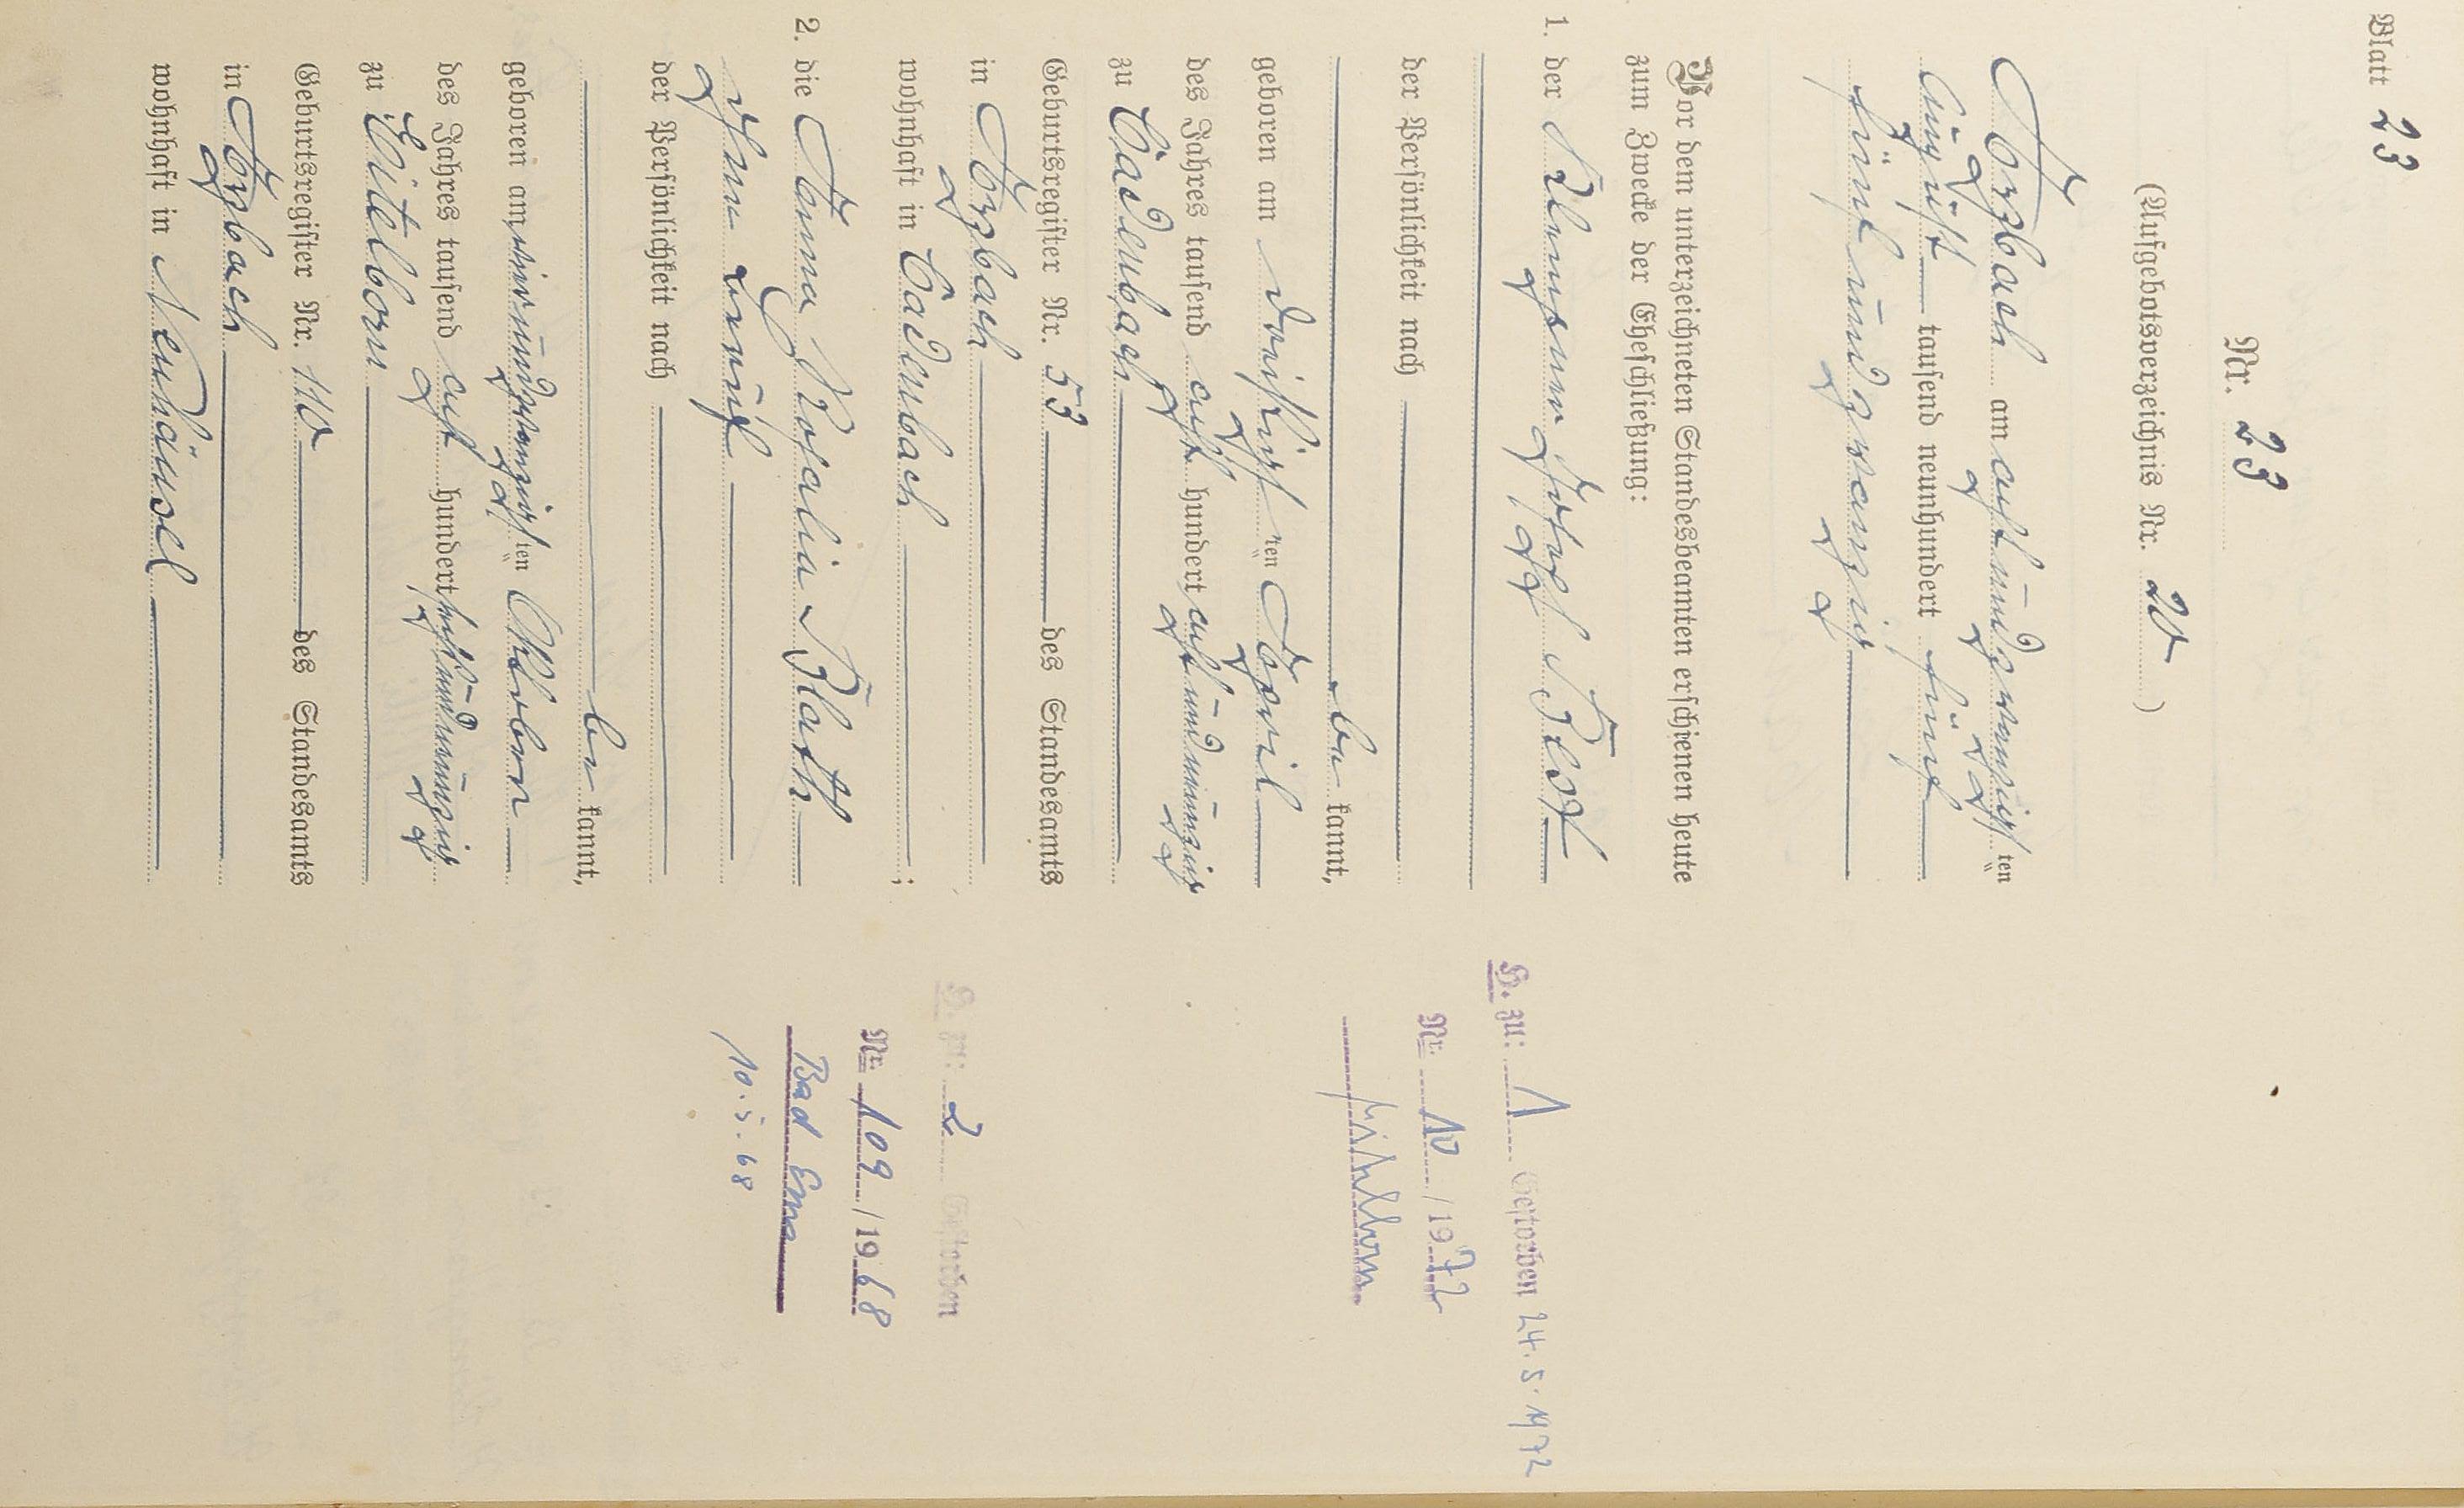 Blatt 23
Nr. 23
(Aufgebotsverzeichnis Nr. 20)
Arzbach am achtundzwanzigsten
August tausend neunhundert fünf
fünfundzwanzig
Vor dem unterzeichneten Standesbeamten erschienen heute
zum Zwecke der Eheschließung:
1. der Klempner Josef
der Persönlichkeit nach
be kannt,
geboren am dreißigsten April
des Jahres tausend acht hundert achtundneunzig
zu Cadenbach
Geburtsregister Nr. 53 des Standesamts
in Arzbach
wohnhaft in Cadenbach ;
2. die Anna Rosalia Klath
ohne Beruf
der Persönlichkeit nach
be kannt,
geboren am vierundzwanzigsten Oktober
des Jahres tausend acht hundert sechsundneunzig
zu Eitelborn
Geburtsregister Nr. 110 des Standesamts
in Arzbach
wohnhaft in Neuhäusel
H. zu: 1 Gestorben 24.5.1972
Nr. 10 / 1972
H. zu: 2 Gestorben
Nr. 109 / 1968
Bad Ems
10.5.68